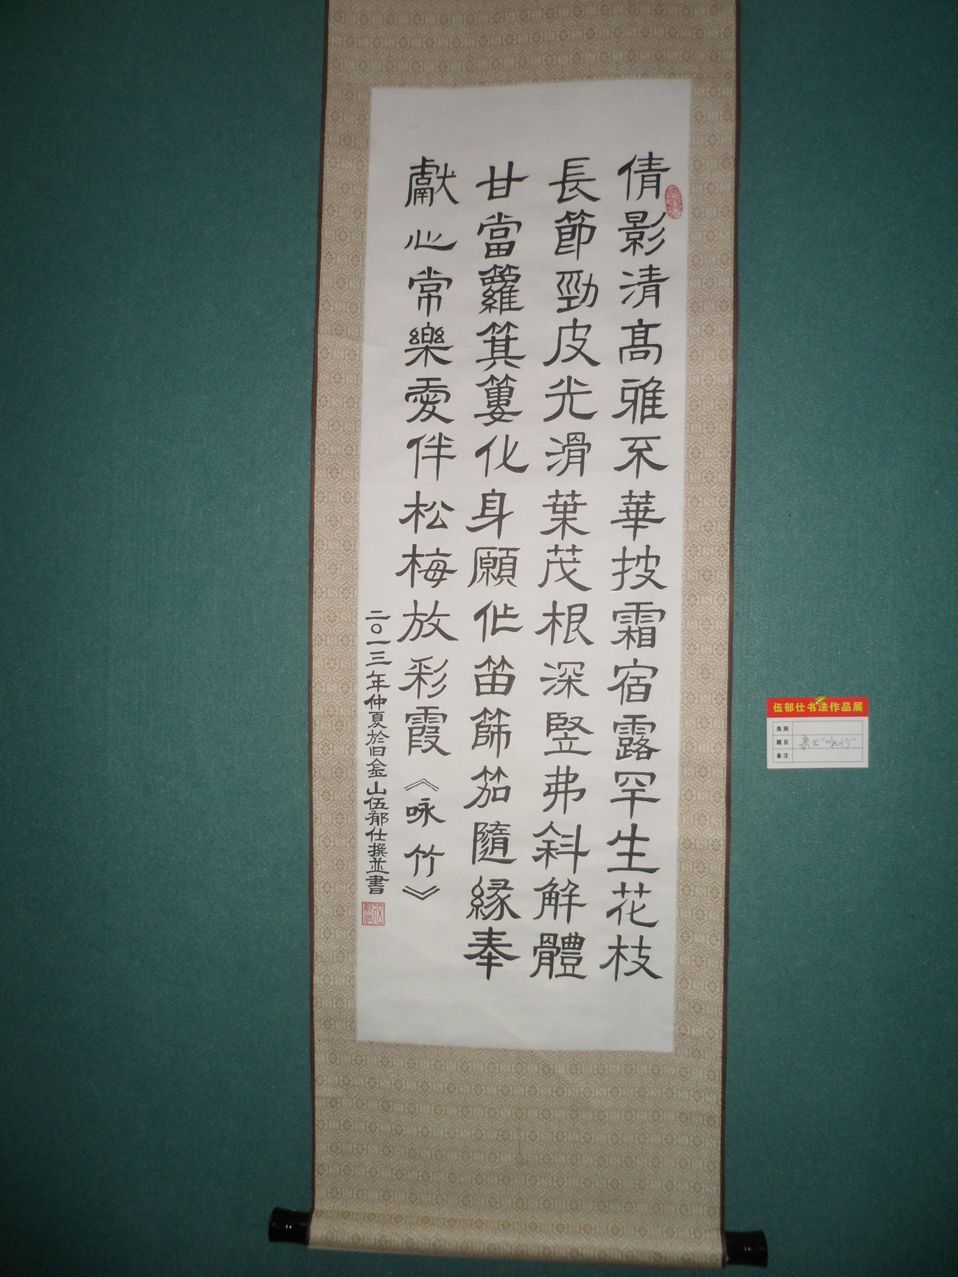 倩影清高雅不華披霜宿露罕生花枝
長節勁皮光滑葉茂根深竪弗斜解體
甘當籮箕簍化身願作笛篩笳隨緣奉
獻心常樂愛伴松梅放彩霞《咏竹》
二〇一三年仲夏於旧金山伍郁仕撰並書
伍郁仕书法作品展
类别
题目
隶书"咏竹"
备注